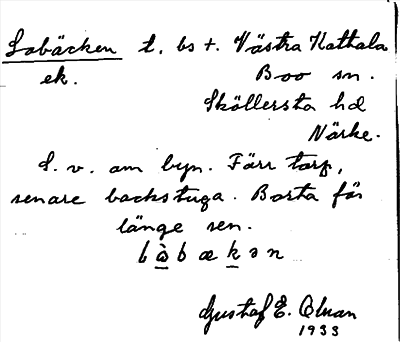 Lobäcken t. bs +. Västra Kattala
ek. Boo sn.
Sköllersta hd
Närke.
S. v. om byn. Förr torp,
senare backstuga. Borta för
länge sen.
1933